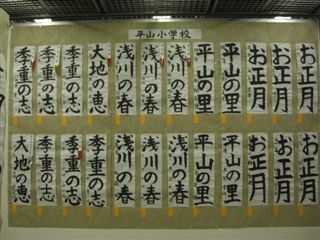 平山小学校
お正月
お正月
お正月
平山の里
平山の里
浅川の春
浅川の春
浅川の春
大地の恵
季重の志
季重の志
季重の志
お正月
お正月
お正月
平山の里
平山の里
浅川の春
浅川の春
浅川の春
季重の志
季重の志
季重の志
大地の恵